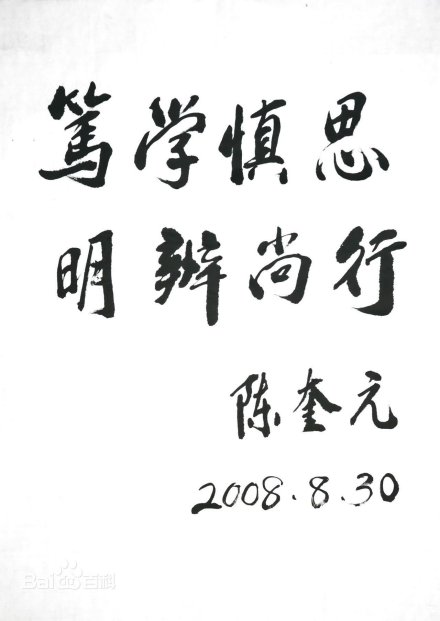 篤学慎思
明辨尚行
陈奎元
2008.8.30
Bai百科